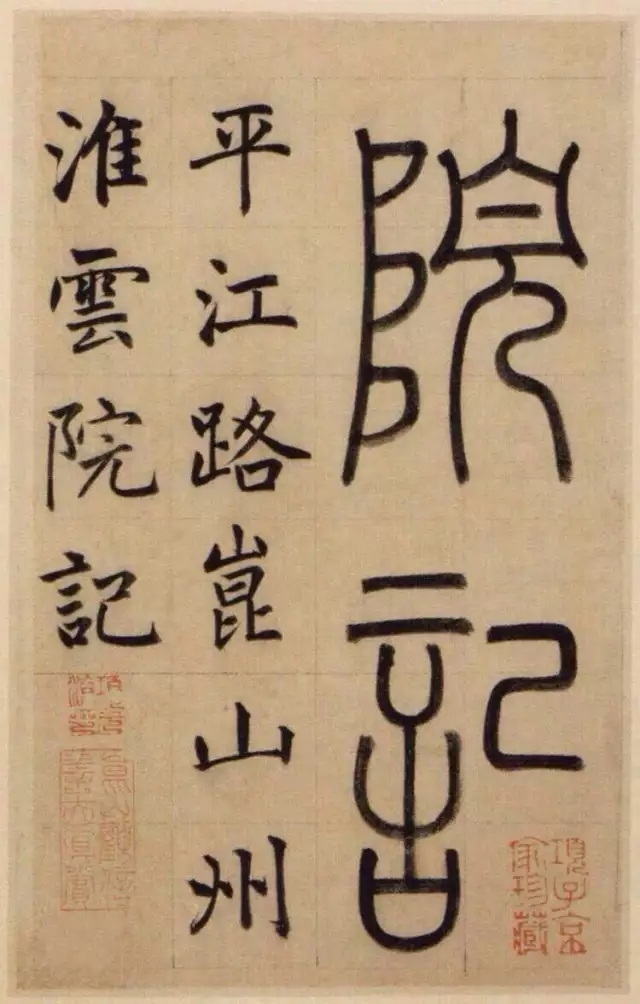 院記
平江路崑山州
淮雲院記
項子京家珍藏